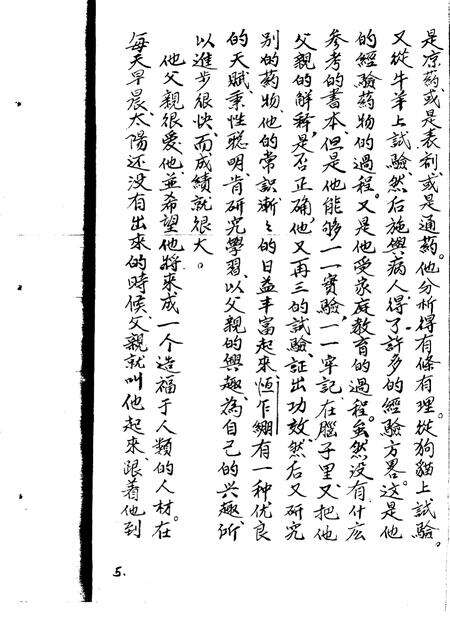 是凉药、或是表剂、或是通藥。他分析得有條有理。從狗貓上試驗。
又從牛羊上試驗、然后施與病人、得了許多的經驗方畧。这是他
的經驗药物的過程。又是他受家庭教育的過程。虽然没有什庅
参考的書本、但是他能够一一實驗、一一牢記、在腦子里又把他
父親的解释、是否正确、他又再三的試驗、証出功效、然后又研究
别的药物、他的常识漸々的日益丰富起來、恒乍绷有一种优良
的天賦、秉性聪明、肯研究學習、以父親的興趣、為自己的兴趣、所
以進步很快、而成績就很大。
他父親很愛他、並希望他將來成一个造福于人類的人材。在
每天早晨、太陽还没有出來的時候、父親就叫他起來、跟着他到
5.